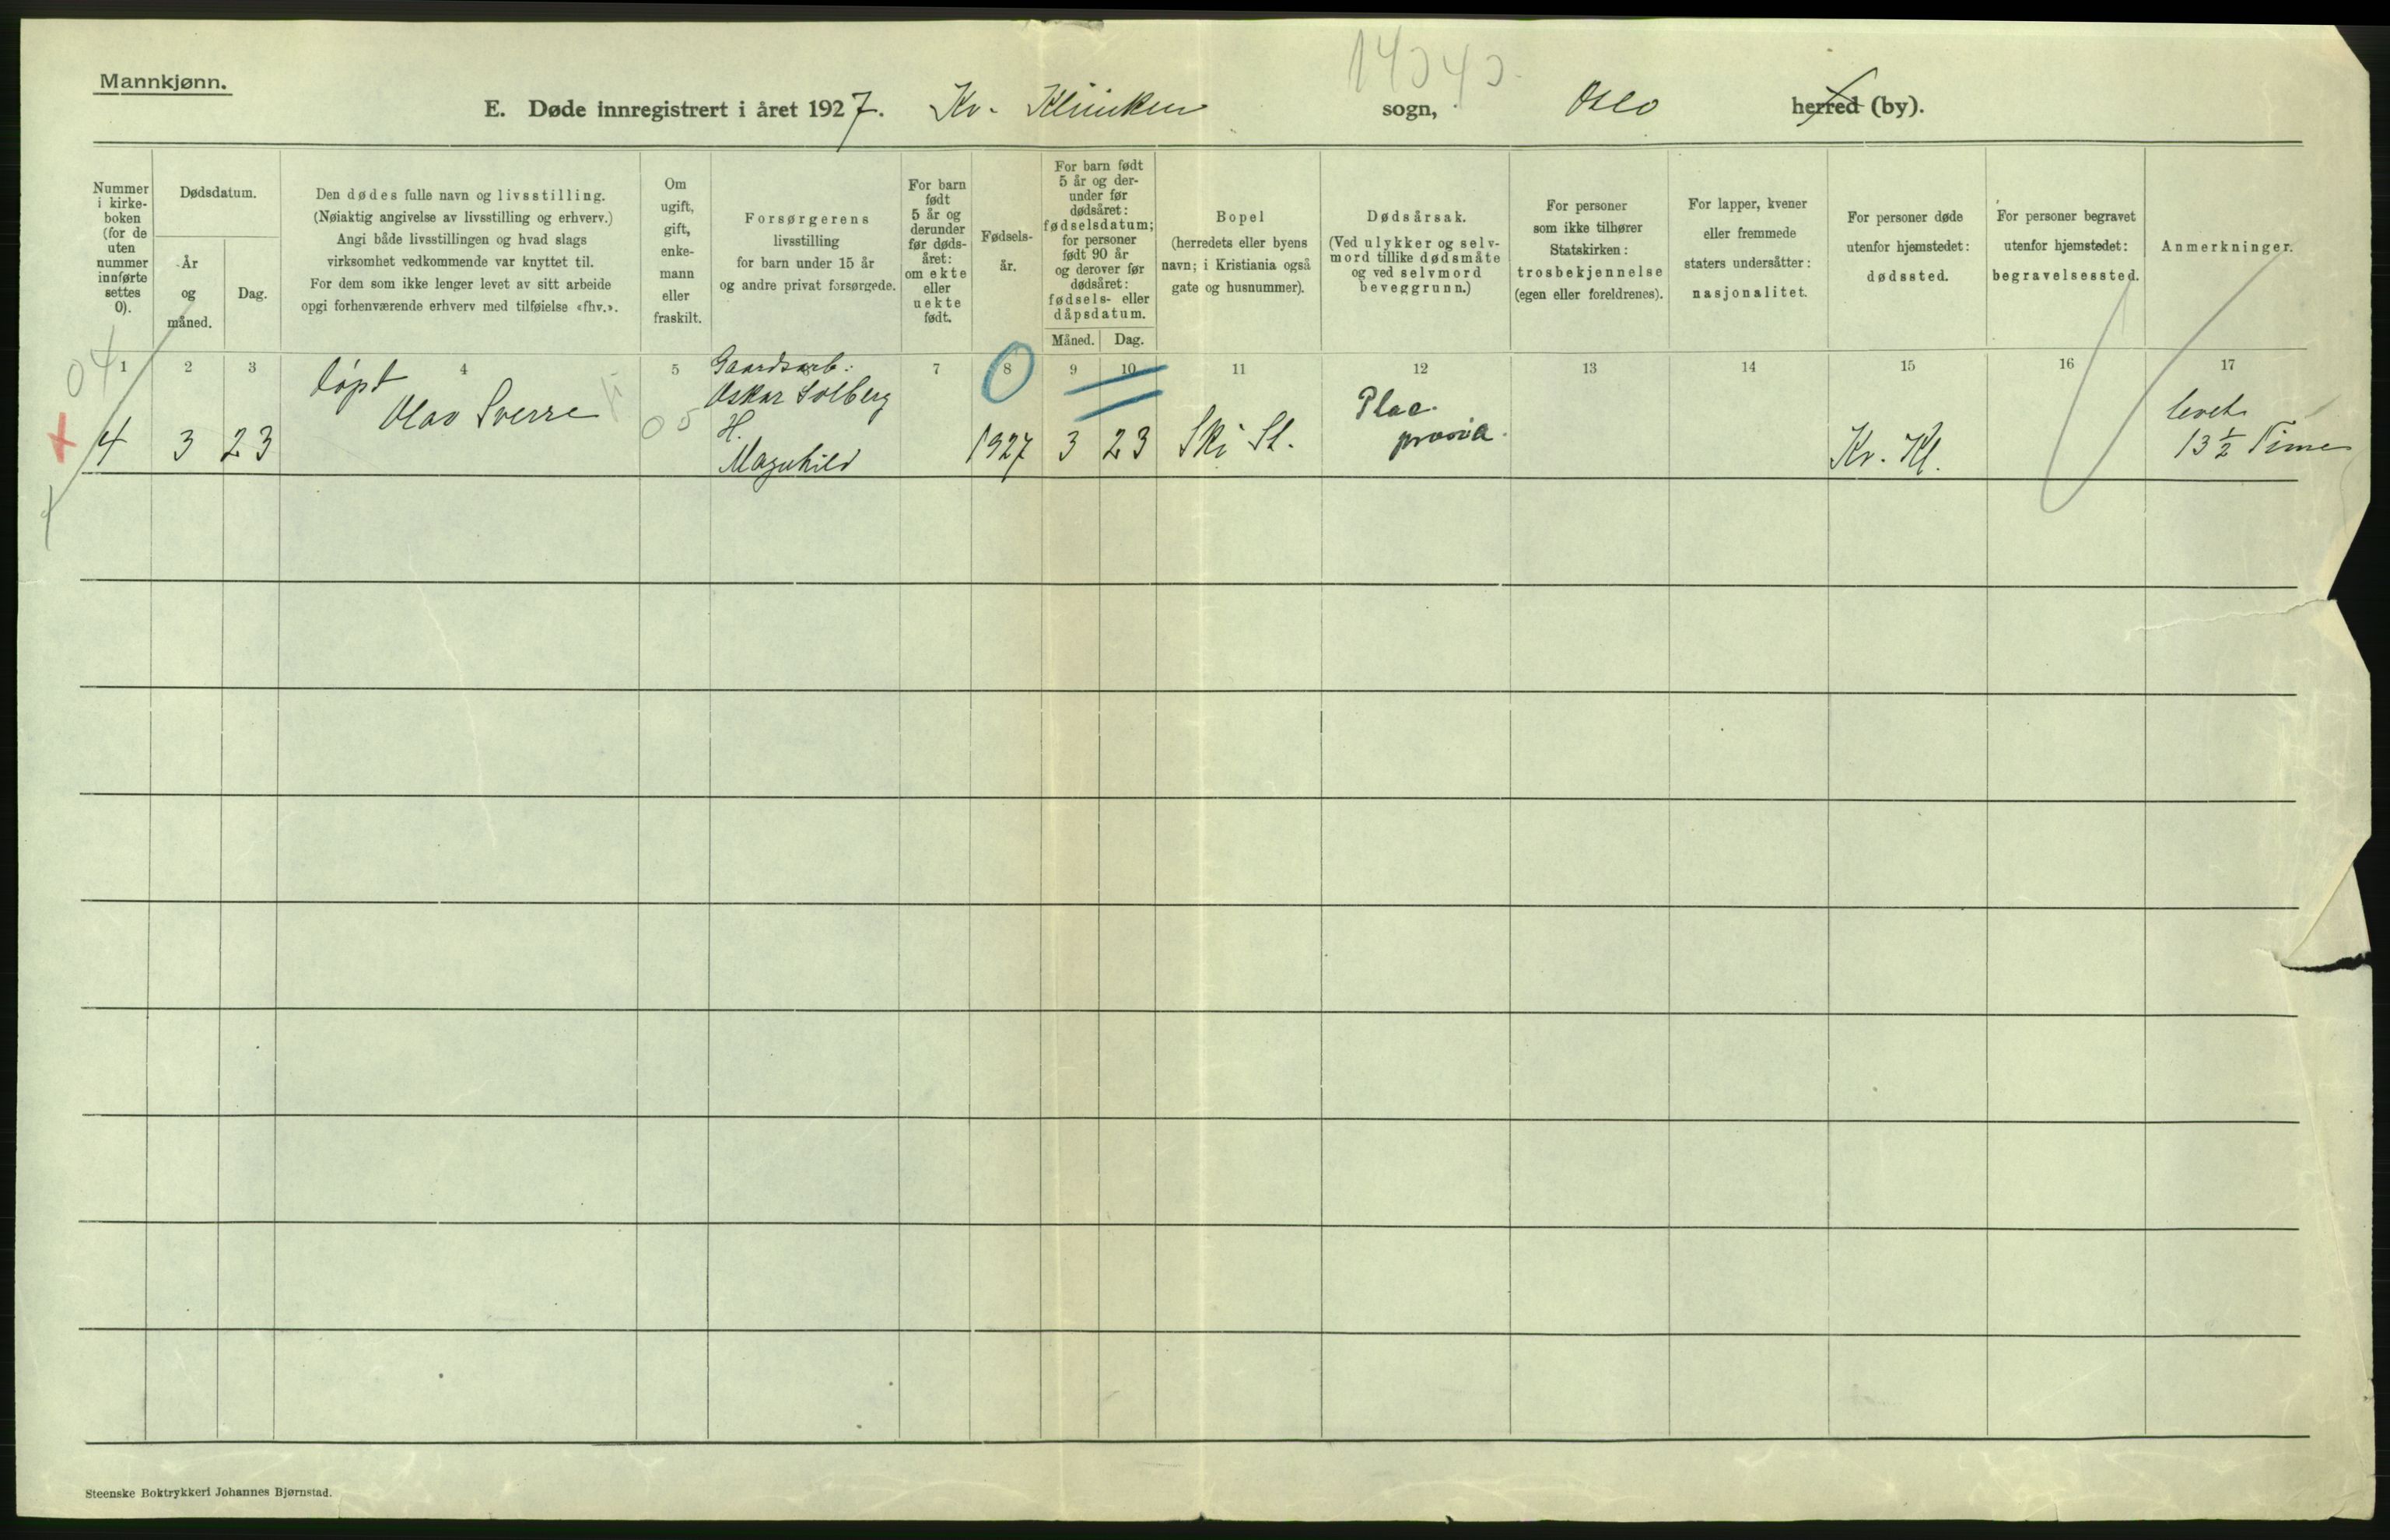 Mannkjønn.
E. Døde innregistrert i året 1927. Kv. Klinikken sogn, Oslo herred (by).
Nummer
i kirke-
boken
(for de
uten
nummer
innførte
settes
0).
Dødsdatum.
År
og
måned.
Dag.
Den dødes fulle navn og livsstilling.
(Nøiaktig angivelse av livsstilling og erhverv.)
Angi både livsstillingen og hvad slags
virksomhet vedkommende var knyttet til.
For dem som ikke lenger levet av sitt arbeide
opgi forhenværende erhverv med tilføielse «fhv.».
Om
ugift,
gift,
enke-
mann
eller
fraskilt.
Forsørgerens
livsstilling
for barn under 15 år
og andre privat forsørgede.
For barn
født
5 år og
derunder
før døds-
året:
om ekte
eller
uekte
født.
Fødsels-
år.
For barn født
5 år og der-
under før
dødsåret:
fødselsdatum;
for personer
født 90 år
og derover før
dødsåret:
fødsels- eller
dåpsdatum.
Måned. Dag.
Bopel
(herredets eller byens
navn; i Kristiania også
gate og husnummer).
Dødsårsak.
(Ved ulykker og selv-
mord tillike dødsmåte
og ved selvmord
beveggrunn.)
For personer
som ikke tilhører
Statskirken:
trosbekjennelse
(egen eller foreldrenes).
For lapper, kvener
eller fremmede
staters undersåtter:
nasjonalitet.
For personer døde
utenfor hjemstedet:
dødssted.
For personer begravet
utenfor hjemstedet:
begravelsessted.
Anmerkninger.
04
1 2 3 4 5 6 7 8 9 10 11 12 13 14 15 16 17
4 3 23
døpt
Olav Sverre
05
Gaardsarb.:
Oskar Solberg
H.
Magnhild
1927 3 23
Ski St.
Plac.
prævia.
Kr. Kl.
levet
13 ½ Time
Steenske Boktrykkeri Johannes Bjørnstad.